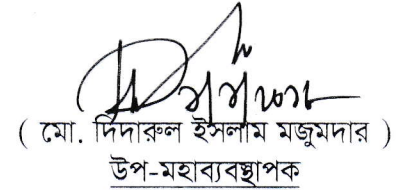 ( মো. দিদারুল ইসলাম মজুমদার )
উপ-মহাব্যবস্থাপক